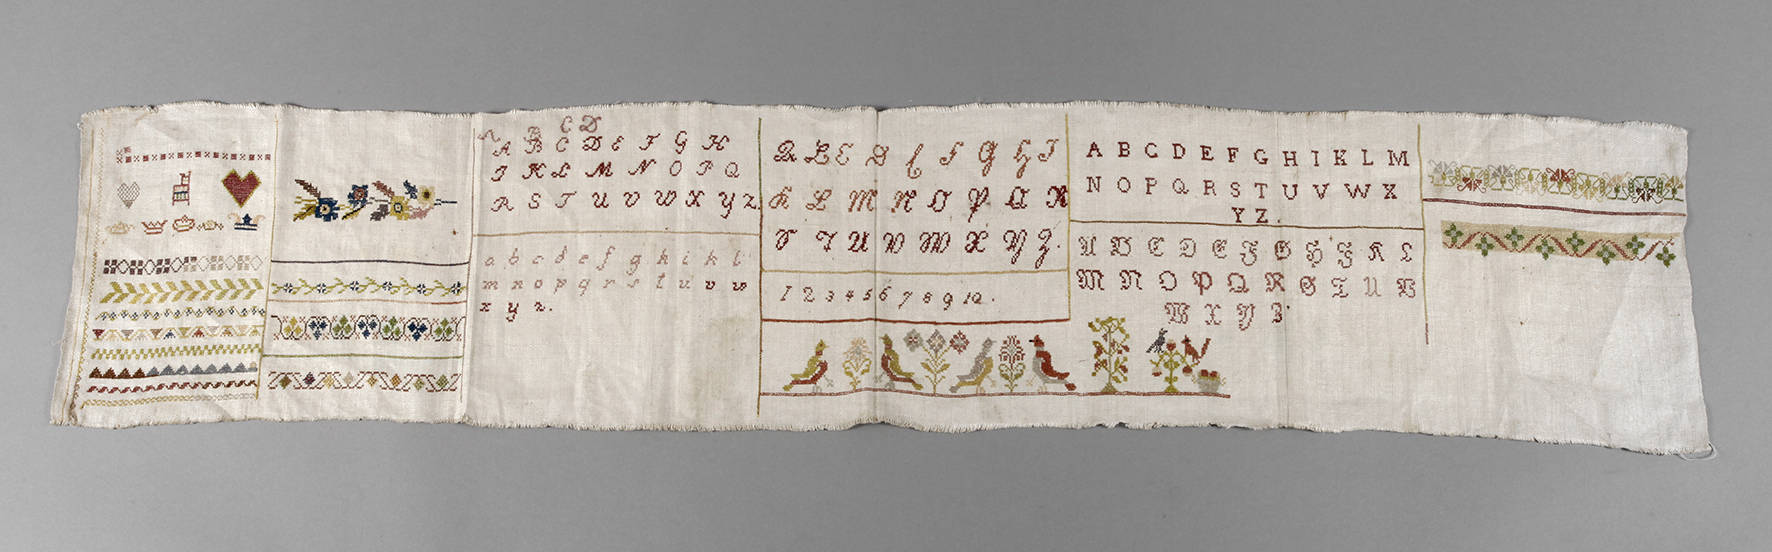 A B C D
A B C D E F G H
I K L M N O P Q
R S T U V W X Y Z
a b c d e f g h i k l
m n o p q r s t u v w
x y z.
A B C D E F G H I
K L M N O P Q R
S T U V W X Y Z.
1 2 3 4 5 6 7 8 9 10.
A B C D E F G H I K L M
N O P Q R S T U V W X
Y Z.
A B C D E F G H I K L
M N O P Q R S T U V
W X Y Z.